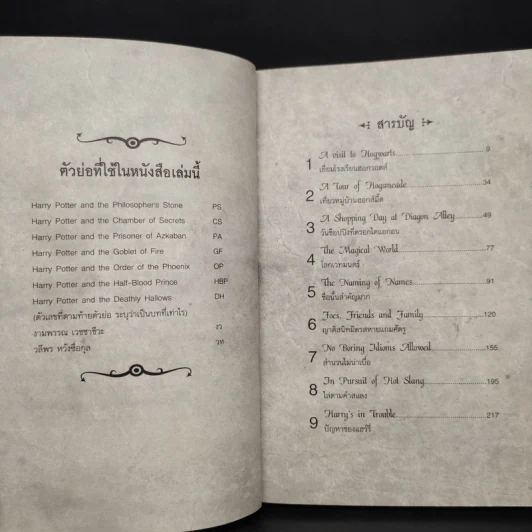 ตัวย่อที่ใช้ในหนังสือเล่มนี้
Harry Potter and the Philosopher's Stone PS
Harry Potter and the Chamber of Secrets CS
Harry Potter and the Prisoner of Azkaban PA
Harry Potter and the Goblet of Fire GF
Harry Potter and the Order of the Phoenix OP
Harry Potter and the Half-Blood Prince HBP
Harry Potter and the Deathly Hallows DH
(ตัวเลขที่ตามท้ายตัวย่อ ระบุว่าเป็นบทที่เท่าไร)
งามพรรณ เวชชาชีวะ งว
วลีพร หวังซื่อกุล วห
สารบัญ
1 A visit to Hogwarts 9
เยี่ยมโรงเรียนฮอกวอตส์
2 A Tour of Hogsmeade 34
เที่ยวหมู่บ้านฮอกส์มี้ด
3 A Shopping Day at Diagon Alley 49
วันช้อปปิ้งที่ตรอกไดแอกอน
4 The Magical World 77
โลกเวทมนตร์
5 The Naming of Names 91
ชื่อนั้นสำคัญมาก
6 Foes, Friends and Family 120
ญาติสนิทมิตรสหายแถมศัตรู
7 No Boring Idioms Allowed 155
สำนวนไม่น่าเบื่อ
8 In Pursuit of Hot Slang 195
ไล่ตามคำสแลง
9 Harry's in Trouble 217
ปัญหาของแฮร์รี่